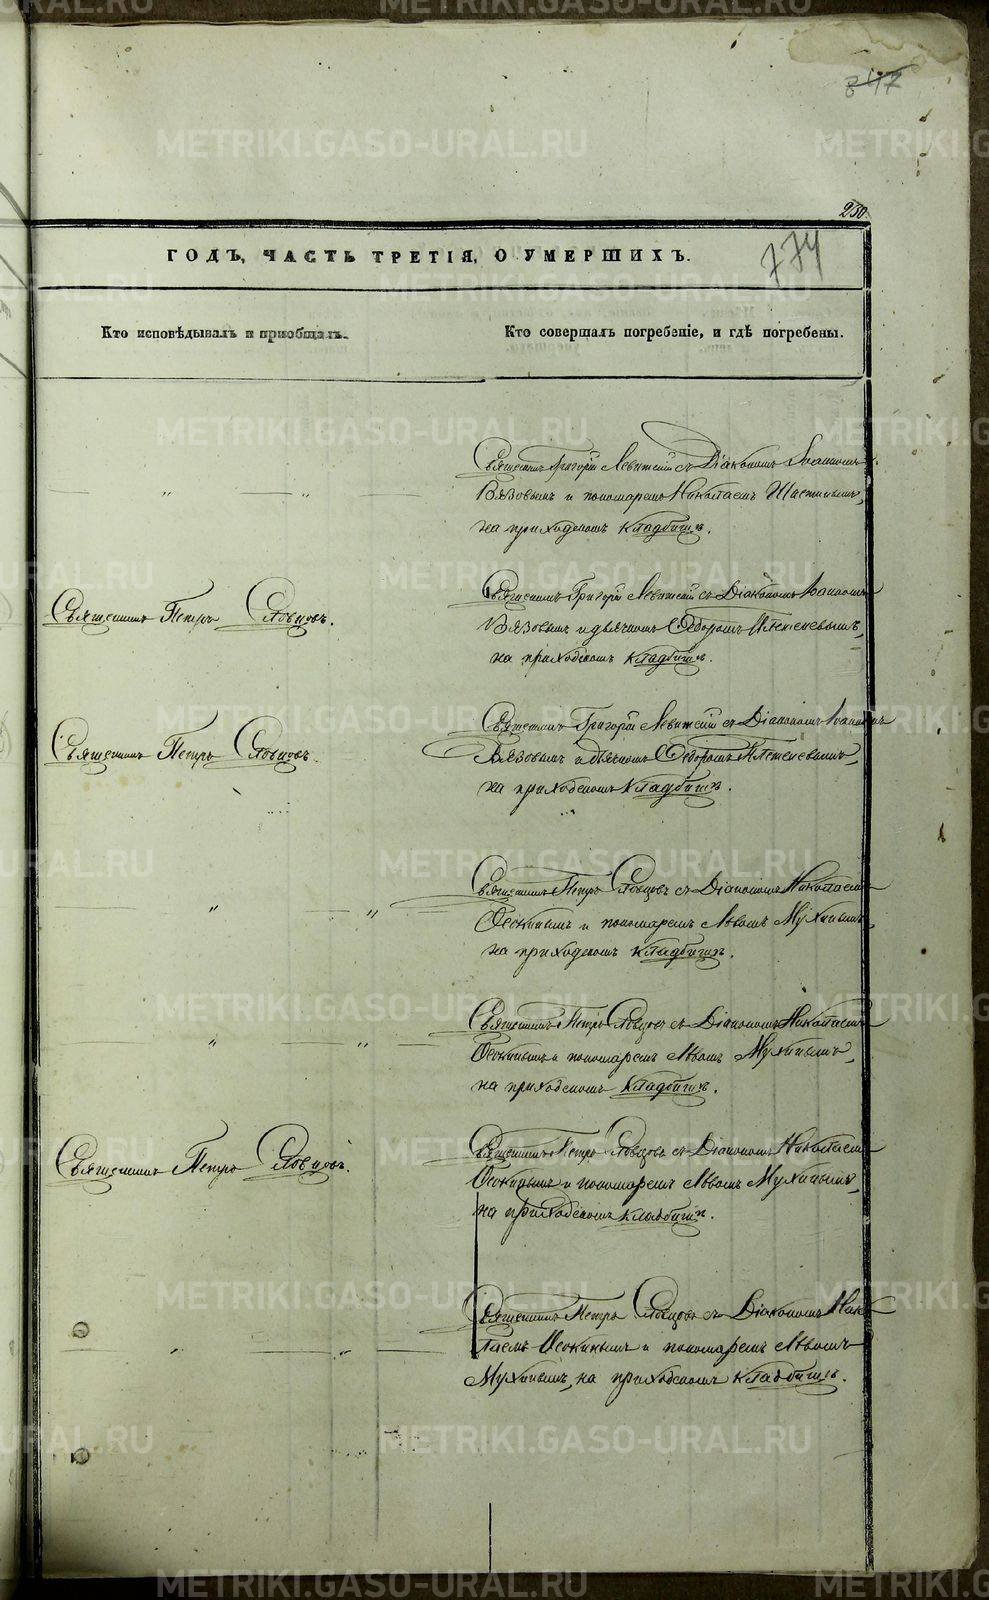 847
250
774
ГОДЪ, ЧАСТЬ ТРЕТІЯ, О УМЕРШИХЪ.
Кто исповѣдывалъ и приобщалъ.
Кто совершалъ погребеніе, и гдѣ погребены.
Священникъ Григорій Левитскій съ Діакономъ Іоанномъ
Вязовымъ и пономаремъ Николаемъ
на приходскомъ кладбищѣ.
Священникъ Петръ Словцовъ.
Священникъ Григорій Левитскій съ Діакономъ Іоанномъ
Вязовымъ и дьячкомъ Ѳедоромъ Плетеневымъ,
на приходскомъ кладбищѣ.
Священникъ Петръ Словцовъ.
Священникъ Григорій Левитскій съ Діакономъ Іоанномъ
Вязовымъ и дьячкомъ Ѳедоромъ Плетеневымъ,
на приходскомъ кладбищѣ.
Священникъ Петръ Словцовъ съ Діакономъ Николаемъ
Осокинымъ и пономаремъ Львомъ Мухинымъ,
на приходскомъ кладбищѣ.
Священникъ Петръ Словцовъ съ Діакономъ Николаемъ
Осокинымъ и пономаремъ Львомъ Мухинымъ,
на приходскомъ кладбищѣ.
Священникъ Петръ Словцовъ.
Священникъ Петръ Словцовъ съ Діакономъ Николаемъ
Осокинымъ и пономаремъ Львомъ Мухинымъ,
на приходскомъ кладбищѣ.
Священникъ Петръ Словцовъ съ Діакономъ Нико
лаемъ Осокинымъ и пономаремъ Львомъ
Мухинымъ, на приходскомъ кладбищѣ.
METRIKI.GASO-URAL.RU